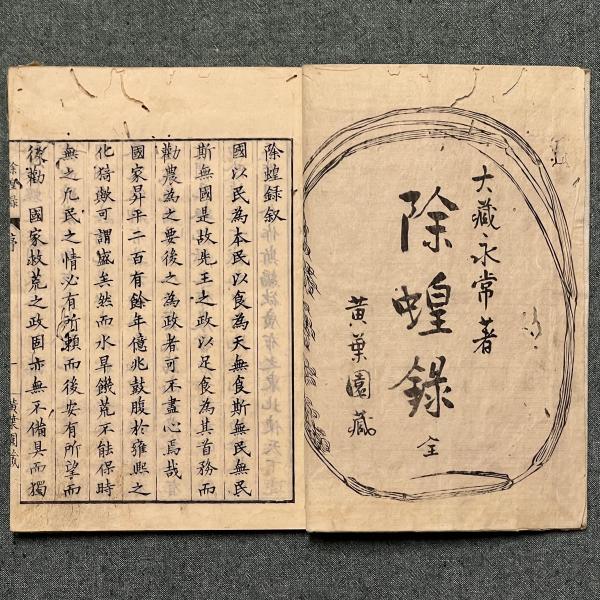 大藏永常著
除蝗録
全
黄葉園藏
除蝗録叙
國以民為本民以食為天無食斯無民無民
斯無國是故先王之政以足食為其首務而
勸農為之要後之為政者可不盡心焉哉
國家昇平二百有餘年億兆鼓腹於雍熙之
化猗歟可謂盛矣然而水旱饑荒不能保時
無之凡民之情必有所賴而後安有所望而
後勸國家救荒之政固亦無不備具而獨
除蝗録
序
一
黄葉園藏